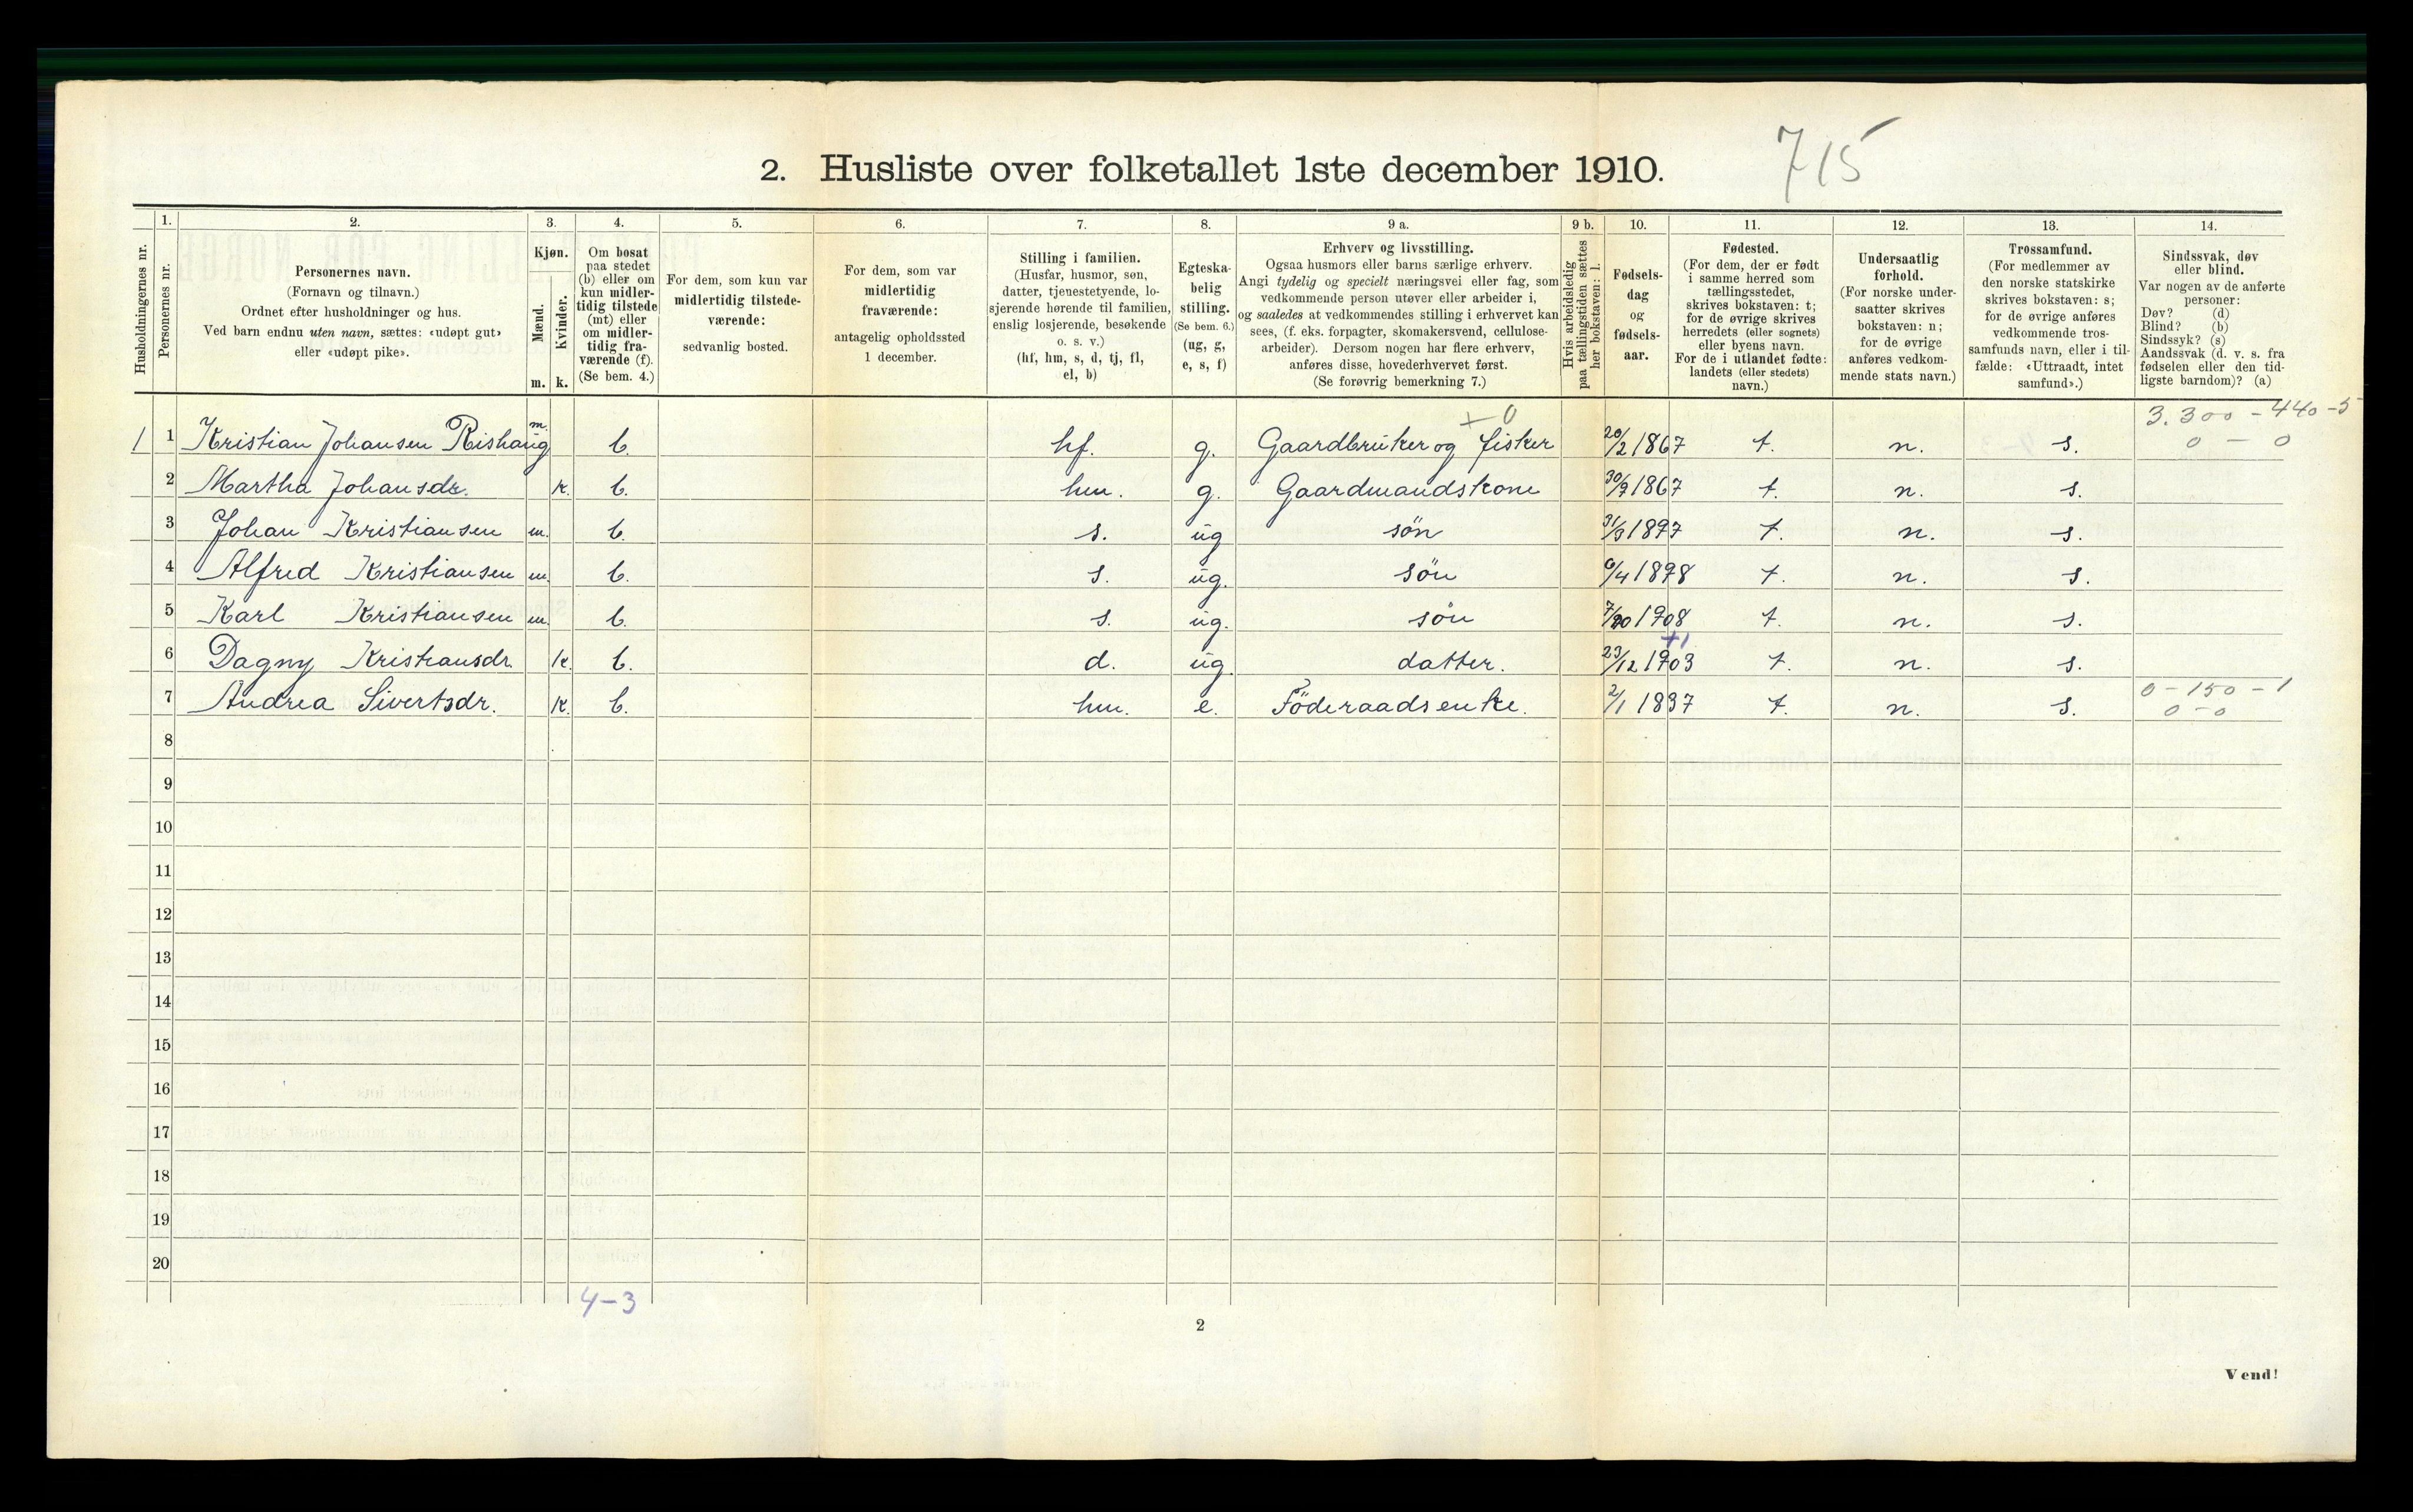 2. Husliste over folketallet 1ste december 1910.
715
Husholdningernes nr.
1.
Personernes nr.
2.
Personernes navn.
(Fornavn og tilnavn.)
Ordnet efter husholdninger og hus.
Ved barn endnu uten navn, sættes: «udøpt gut»
eller «udøpt pike».
3.
Kjøn.
Mænd.
Kvinder.
m. k.
4.
Om bosat
paa stedet
(b) eller om
kun midler-
tidig tilstede
(mt) eller
om midler-
tidig fra-
værende (f).
(Se bem. 4.)
5.
For dem, som kun var
midlertidig tilstede-
værende:
sedvanlig bosted.
6.
For dem, som var
midlertidig
fraværende:
antagelig opholdssted
1 december.
7.
Stilling i familien.
(Husfar, husmor, søn,
datter, tjenestetyende, lo-
sjerende hørende til familien,
enslig losjerende, besøkende
o. s. v.)
(hf, hm, s, d, tj, fl,
el, b)
8.
Egteska-
belig
stilling.
(Se bem. 6.)
(ug, g,
e, s, f)
9 a.
Erhverv og livsstilling.
Ogsaa husmors eller barns særlige erhverv.
Angi tydelig og specielt næringsvei eller fag, som
vedkommende person utøver eller arbeider i,
og saaledes at vedkommendes stilling i erhvervet kan
sees, (f. eks. forpagter, skomakersvend, cellulose-
arbeider). Dersom nogen har flere erhverv,
anføres disse, hovederhvervet først.
(Se forøvrig bemerkning 7.)
9 b.
Hvis arbeidsledig
paa tællingstiden sættes
her bokstaven: l.
10.
Fødsels-
dag
og
fødsels-
aar.
11.
Fødested.
(For dem, der er født
i samme herred som
tællingsstedet,
skrives bokstaven: t;
for de øvrige skrives
herredets (eller sognets)
eller byens navn.
For de i utlandet fødte:
landets (eller stedets)
navn.)
12.
Undersaatlig
forhold.
(For norske under-
saatter skrives
bokstaven: n;
for de øvrige
anføres vedkom-
mende stats navn.)
13.
Trossamfund.
(For medlemmer av
den norske statskirke
skrives bokstaven: s;
for de øvrige anføres
vedkommende tros-
samfunds navn, eller i til-
fælde: «Uttraadt, intet
samfund».)
14.
Sindssvak, døv
eller blind.
Var nogen av de anførte
personer:
Døv? (d)
Blind? (b)
Sindssyk? (s)
Aandssvak (d. v. s. fra
fødselen eller den tid-
ligste barndom)? (a)
+ 0
3.300 - 440 - 5
1 1 Kristian Johansen Rishaug m. b. hf. g. Gaardbruker og fisker 20/2 1867 t. n. s. 0 - 0
2 Martha Johansdr. k. b. hm. g. Gaardmandskone 30/7 1867 t. n. s.
3 Johan Kristiansen m. b. s. ug søn 31/3 1897 t. n. s.
4 Alfred Kristiansen m. b. s. ug. søn 6/4 1898 t. n. s.
5 Karl Kristiansen m. b. s. ug. søn 1908 t. n. s.
+1
6 Dagny Kristiansdr. k. b. d. ug. datter. 23/12 1903 t. n. s.
0 - 150 - 1
7 Andrea Sivertsdr. k. b. hm. e. Föderaadsenke. 2/1 1837 t. n. s. 0 - 0
8
9
10
11
12
13
14
15
16
17
18
19
20
4-3
2
Vend!